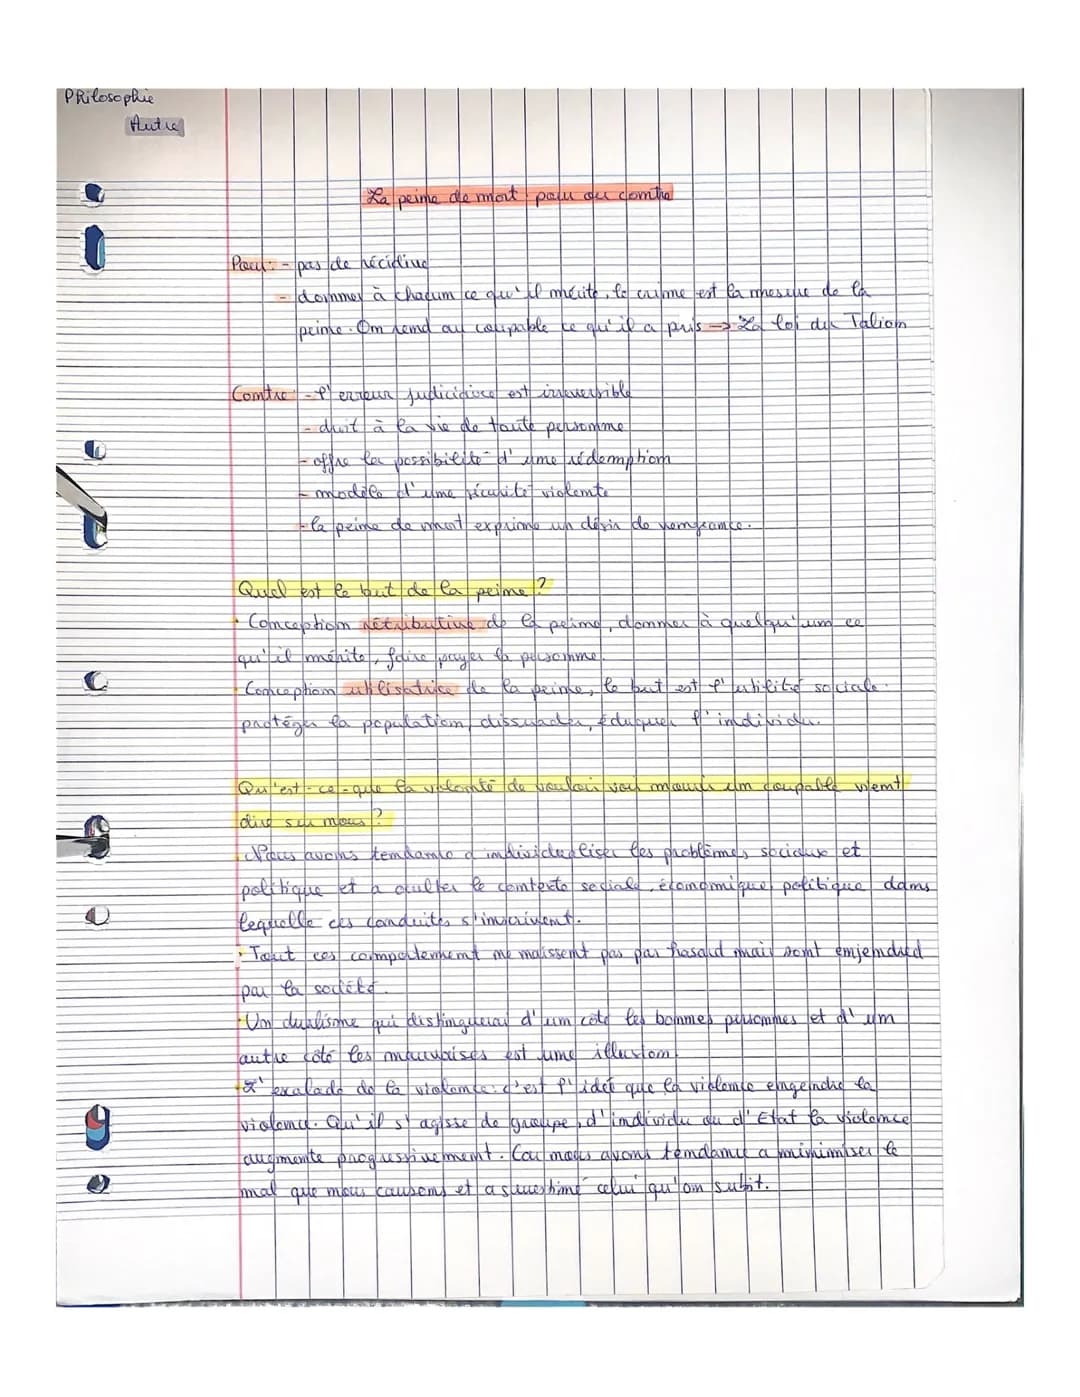 Philosophie
Autre
La peine de mort pour ou contre
Pour : - pas de récidive
- donner à chacun ce qu'il mérite, le crime est la mesure de la
peine. On rend au coupable ce qu'il a pris → La loi du Talion
Contre : - l'erreur judiciaire est irréversible
- droit à la vie de toute personne
- offre la possibilité d'une rédemption
- modèle d'une sécurité violente
- la peine de mort exprime un désir de vengeance.
Quel est le but de la peine ?
• Conception rétributive de la peine, donner à quelqu'un ce
qu'il mérite, faire payer la personne.
• Conception utilisatrice de la peine, le but est l'utilité sociale.
protéger la population, dissuader, éduquer l'individu.
Qu'est-ce-que la volonté de vouloir voir mourir un coupable vient
dire sur nous ?
• Nous avons tendance a individualiser les problèmes sociaux et
politique et a oculter le contexte sociale, économique, politique dans
lequelle ces conduites s'inscrivent.
• Tout ces comportement ne naissent pas par hasard mais sont enjendred
par la société.
• Un dualisme qui distinguerai d'un coté les bonnes personnes et d'un
autre côté les mauvaises est une illusion.
• L'escalade de la violence : c'est l'idée que la violence engendre la
violence. Qu'il s'agisse de groupe, d'individu ou d'Etat la violence
augmente progressivement. Car nous avons tendance a minimiser le
mal que nous causons et a surestimé celui qu'on subit.